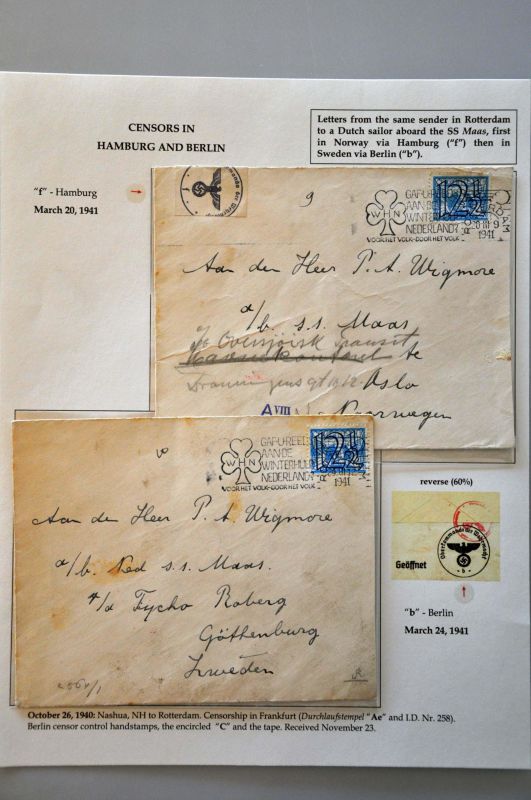 CENSORS IN
HAMBURG AND BERLIN
Letters from the same sender in Rotterdam
to a Dutch sailor aboard the SS Maas, first
in Norway via Hamburg ("f") then in
Sweden via Berlin ("b").
"f" - Hamburg
March 20, 1941
f
9
WHN
GAF U REEDS
AAN DE
WINTERHULP
NEDERLAND?
VOOR HET VOLK-DOOR HET VOLK
12½
1941
Aan den Heer P. A. Wigmore
a/b. s.s. Maas
Oversjöisk Transit
te
Oslo
A VIII
Noorwegen
WHN
GAF U REEDS
AAN DE
WINTERHULP
NEDERLAND?
VOOR HET VOLK-DOOR HET VOLK
12½
1941
Aan den Heer P. A. Wigmore
a/b. Ned s.s. Maas.
c/o Tycho Roberg
Göthenburg
Zweden
reverse (60%)
Oberkommando der Wehrmacht
Geöffnet
- b -
"b" - Berlin
March 24, 1941
October 26, 1940: Nashua, NH to Rotterdam. Censorship in Frankfurt (Durchlaufstempel "Ae" and I.D. Nr. 258).
Berlin censor control handstamps, the encircled "C" and the tape. Received November 23.